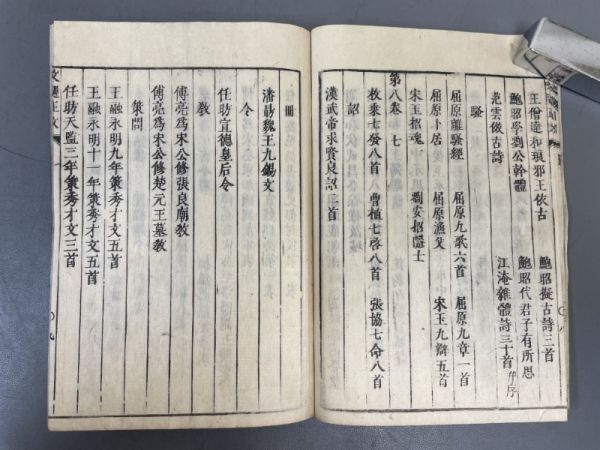 王僧達和琅邪王依古　鮑照擬古詩三首
鮑照學劉公幹體　鮑照代君子有所思
范雲傚古詩　江淹雜體詩三十首并序
騷
屈原離騷經　屈原九歌六首　屈原九章一首
屈原卜居　屈原漁父　宋玉九辯五首
宋玉招魂　劉安招隱士
第八卷　七
枚乗七發八首　曹植七啓八首　張協七命八首
詔
漢武帝求賢良詔二首
冊
潘勗魏王九錫文
令
任昉宣德皇后令
教
傅亮爲宋公修張良廟教
傅亮爲宋公修楚元王墓教
策問
王融永明九年策秀才文五首
王融永明十一年策秀才文五首
任昉天監三年策秀才文三首
文選正文
○九